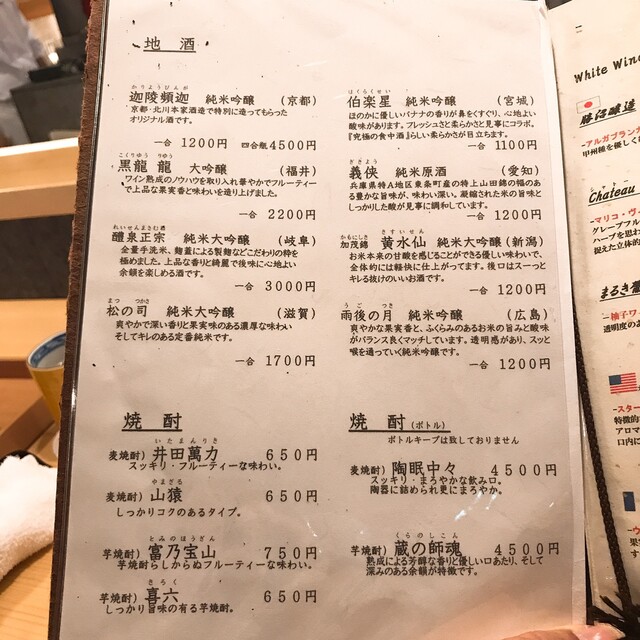 地酒
かりょうびんが
迦陵頻迦 純米吟醸 (京都)
京都・北川本家酒造で特別に造ってもらった
オリジナル酒です。
一合 1200円 四合瓶4500円
こくりゅう りゅう
黒龍 龍 大吟醸 (福井)
ワイン熟成のノウハウを取り入れ華やかでフルーティー
で上品な果実香と味わいを造り上げました。
一合 2200円
れいせんまさむね
醴泉正宗 純米大吟醸 (岐阜)
全量手洗米、麹蓋による製麹などこだわりの粋を
極めました。上品な香りと綺麗で後味に心地よい
余韻を楽しめる酒です。
一合 3000円
まつ つかさ
松の司 純米大吟醸 (滋賀)
爽やかで深い香りと果実味のある濃厚な味わい
そしてキレのある定番純米です。
一合 1700円
焼酎
いたまんりき
麦焼酎) 井田萬力 650円
スッキリ・フルーティーな味わい。
やまざる
麦焼酎) 山猿 650円
しっかりコクのあるタイプ。
とみのほうざん
芋焼酎) 富乃宝山 750円
芋焼酎らしからぬフルーティーな味わい。
きろく
芋焼酎) 喜六 650円
しっかり旨味の有る芋焼酎。
はくらくせい
伯楽星 純米吟醸 (宮城)
ほのかに優しいバナナの香りが鼻をすぐり、心地よい
酸味があります。フレッシュさと柔らかさと見事にコラボ。
『究極の食中酒』らしい柔らかさが目立ちます。
一合 1100円
ぎきょう
義侠 純米原酒 (愛知)
兵庫県特A地区東条町産の特上山田錦の幅のあ
る豊かな旨味が、味わい深い。凝縮された米の旨味と
しっかりした酸が見事に調和しています。
一合 1200円
かもにしき きすいせん
加茂錦 黄水仙 純米大吟醸(新潟)
お米本来の甘酸を感じることができる優しい味わいで、
全体的には軽快に仕上がってます。後口はスーっと
キレる抜けのいいお酒です。
一合 1200円
うご つき
雨後の月 純米吟醸 (広島)
爽やかな果実香と、ふくらみのあるお米の旨みと酸味
がバランス良くマッチしています。透明感があり、スッと
喉を通っていく純米吟醸です。
一合 1200円
焼酎(ボトル)
ボトルキープは致しておりません
麦焼酎) 陶眠中々 4500円
スッキリ・まろやかな飲み口。
陶器に詰められ更にまろやか。
くらのしこん
芋焼酎) 蔵の師魂 4500円
熟成による芳醇な香りと優しい口あたり、そして
深みのある余韻が特徴です。
White Wine
勝沼醸造
-アルガブランカ
甲州種を優しく
Chateau
-マリコ・ヴ
グレープフル
ハーブを思わ
捉えた立体的
まるき葡
-柚子ワ
透明度の
-スター
特徴的
アロマ
口内に